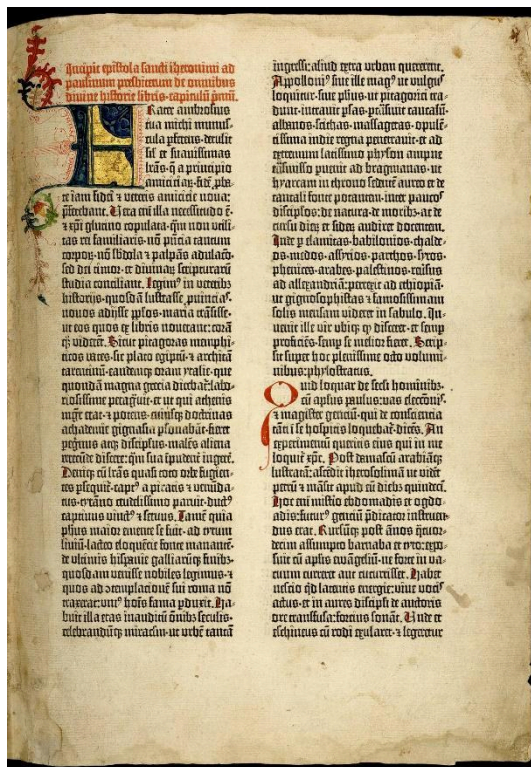 Incipit epistola sancti iheronimi ad
paulinum presbiterum de omnibus
divine historie libris·capitulū pmū.
Frater ambrosius
tua michi munus-
cula pferens·detulit
sił et suavissimas
lrās·q̄ a principio
amicicie
te iam fidei ⁊ veteris amicicie nova:
pferebant. Vera em illa necessitudo ē·
⁊ xpi glutino copulata·quā non utili-
tas rei familiaris·nō pntia tantum
corporꝫ·nō sbdola ⁊ palpās adulacō·
sed dei timor·et divinarꝫ scripturarū
studia conciliant. Legimꝰ in veteribꝫ
historijs·quosdā lustrasse provincias·
novos adijsse pplos·maria trāsisse·
ut eos quos ex libris noverant: corā
qꝫ viderēt. Sicut pitagoras memphi-
ticos vates·sic plato egiptū·⁊ architā
tarentinū·eandemqꝫ oram ytalie·que
quondā magna grecia dicebat: labo-
riosissime peragravit·et ut qui athenis
mgr erat·⁊ potens·cuiusqꝫ doctrinas
achademie gignasia psonabāt·fieret
peginus atqꝫ discipulus·malēs aliena
verecūde discere: qm sua īpudent ingere.
Deniqꝫ cū lrās quasi toto orbe fugien-
tes pseqt·captꝰ a piratis ⁊ venūda-
tus·tyrāno crudelissimo paruit·ductꝰ
captivus vinctꝰ ⁊ servus. Tamē quia
phus maior emente se fuit·ad tytum
livium·lacteo eloquētie fonte manantē·
de ultimis hispanie galliarūqꝫ finibꝫ·
quosdam venisse nobiles legimus·⁊
quos ad ꝯtemplacionē sui roma nō
traxerat: uniꝰ hoīs fama pduxit. Ha-
buit illa etas inauditū omībꝫ seculis·
celebrandūqꝫ miraclm·ut urbē tantā
ingressi: aliud extra urbem quererent.
Appolloniꝰ sive ille magꝰ ut vulgus
loquitur·sive phus·ut pitagorici tra-
dunt·intravit psas·ptrāsivit caucasū·
albanos·scithas·massagetas·opulē-
tissima indie regna penetravit·et ad
extremum latissimo physon ampne
trāsmisso puenit ad bragmanas·ut
hyarcam in throno sedentē aureo et de
tantali fonte potantem·inter paucos
discipulos·de natura·de moribꝫ·ac de
cursu dierꝫ et siderꝫ audiret docentem.
Inde p elamitas·babilonios·chalde-
os·medos·assyrios·parthos·syros·
phenices·arabes·palestinos·reversus
ad alexandriā: perrexit ad ethiopiā·
ut gignosophistas ⁊ famosissimam
solis mensam videret in sabulo. In-
venit ille vir ubiqꝫ qd disceret·et semp
proficiēs·semp se melior fieret. Scrip-
sit super hoc plenissime octo volumi-
nibus: phylostratus.
Quid loquar de seculi hominibꝫ·
cū apłus paulus·vas electōnis·
⁊ magister genciū·qui de consciencia
tāti ī se hospitis loquebat·dicēs. An
experimentum queritis eius qui in me
loquit xpc. Post damascū arabiāqꝫ
lustratā: ascēdit iherosolimā ut vidēt
petrū ⁊ māsit apud eū diebꝫ quindeci.
Hoc eni misterio ebdomadis et ogdo-
adis: futurꝰ genciū pdicator instruen-
dus erat. Rursūqꝫ post ānos quatuor-
decim assumpto barnaba et tyto: expo-
suit cū aplis ewāgeliū·ne forte in va-
cuum curreret aut cucurrisset. Habet
nescio qd latentis energie: vive vocis
actus·et in aures discipli de auctoris
ore transfusa: forcius sonāt. Unde et
eschineus cū rodi exularet·⁊ legeretur